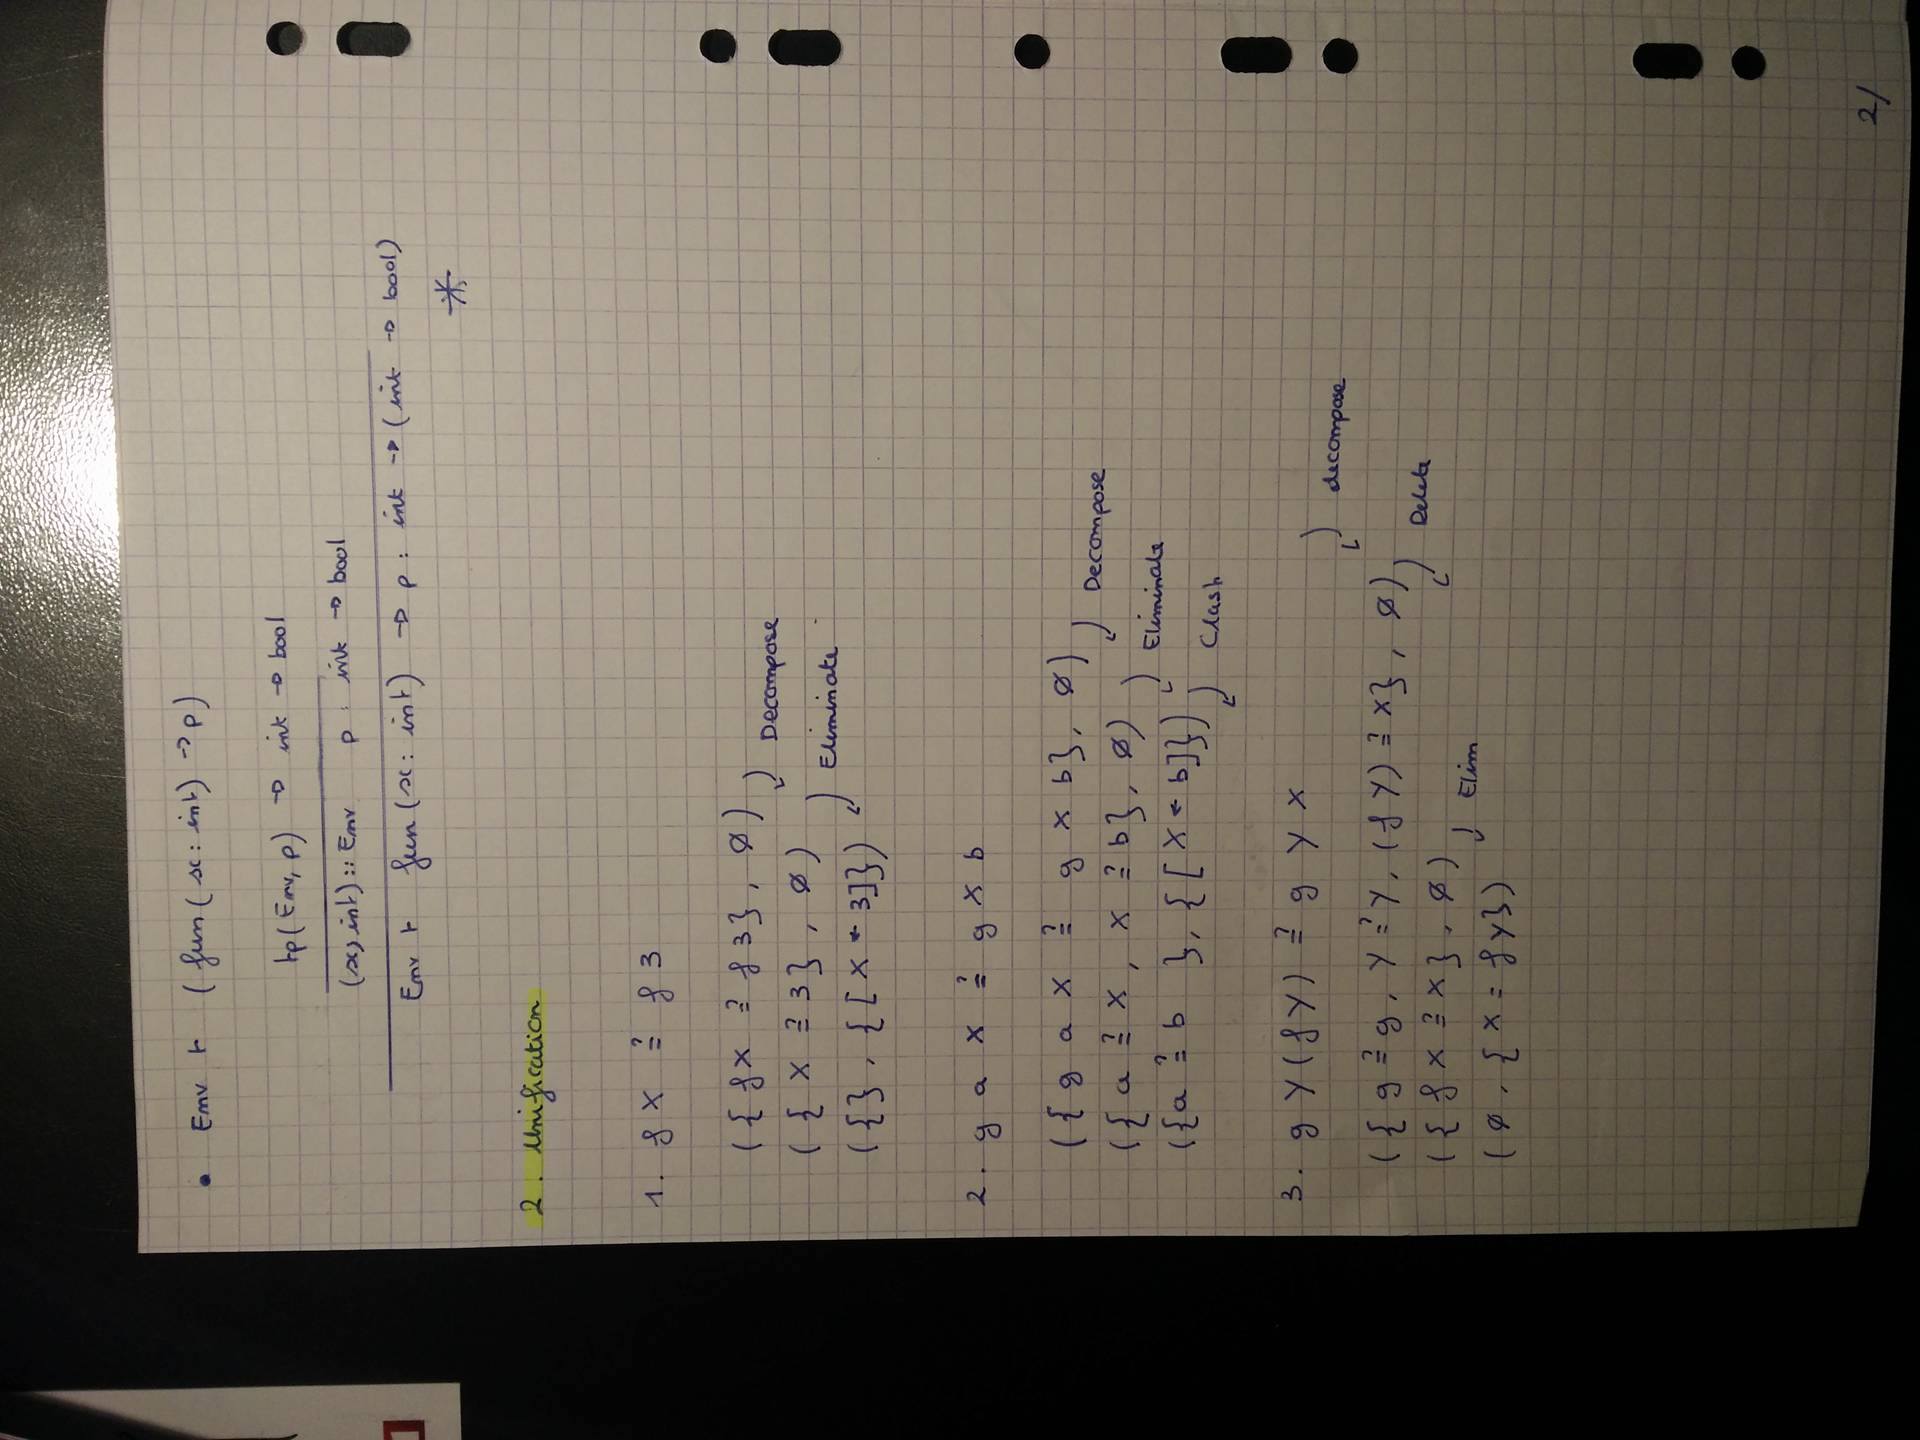 • Env ⊢ (fun (x : int) → p)
tp(Env, p) → int → bool
(x, int) :: Env p : int → bool
Env ⊢ fun (x : int) → p : int → (int → bool)
*
2. Unification
1. f X ≟ f 3
({ f X ≟ f 3 }, ∅) Decompose
({ X ≟ 3 }, ∅) Eliminate
({}, {[X ← 3]})
2. g a X ≟ g X b
({ g a X ≟ g X b }, ∅) Decompose
({ a ≟ X, X ≟ b }, ∅) Eliminate
({a ≟ b }, {[X ← b]}) Clash
3. g Y (f Y) ≟ g Y X decompose
({ g ≟ g, Y ≟ Y, (f Y) ≟ X }, ∅) Delete
({ f X ≟ X }, ∅) Elim
(∅, { X = f Y })
2/